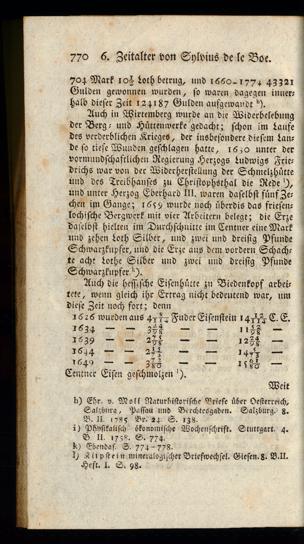 770 6. Zeitalter von Sylvius de le Boe.
704 Mark 10½ Loth betrug, und 1660-1774 43321
Gulden gewonnen wurden, so waren dagegen inner-
halb dieser Zeit 124187 Gulden aufgewandt h).
Auch in Wirtemberg wurde an die Widerbelebung
der Berg- und Hüttenwerke gedacht; schon im Laufe
des verderblichen Krieges, der insbesondere diesem Lan-
de so tiese Wunden geschlagen hatte, 1630 unter der
vormundschaftlichen Regierung Herzogs Ludwigs Frie-
drichs war von der Widerherstellung der Schmelzhütte
und des Treibhaußes zu Christophsthal die Rede i),
und unter Herzog Eberhard III. waren daselbst fünf Ze-
chen im Gange; 1659 wurde noch überdis das friesen-
lochische Bergwerk mit vier Arbeitern belegt; die Erze
daselbst hielten im Durchschnitte im Centner eine Mark
und zehen Loth Silber, und zwei und dreisig Pfunde
Schwarzkupfer, und die Erze aus dem vordern Schach-
te acht Lothe Silber und zwei und dreisig Pfunde
Schwarzkupfer k).
Auch die hessische Eisenhütte zu Biedenkopf arbei-
tete, wenn gleich ihr Ertrag nicht bedeutend war, um
diese Zeit noch fort; denn
1626 wurden aus Fuder Eisenstein C. E.
1634 — —
1639 — —
1644 — —
1649 — —
Centner Eisen geschmolzen l).
Weit
h) Ehr. v. Moll Naturhistorische Briefe über Oesterreich,
Salzburg, Passau und Berchtesgaden. Salzburg. 8.
B. II. 1785 Br. 24. S. 138.
i) Physikalisch ökonomische Wochenschrift. Stuttgart. 4.
B. II. 1758. S. 774.
k) Ebendas. S. 774-778.
l) Klipstein mineralogischer Briefwechsel. Giesen. 8. B. II.
Heft. I. S. 98.